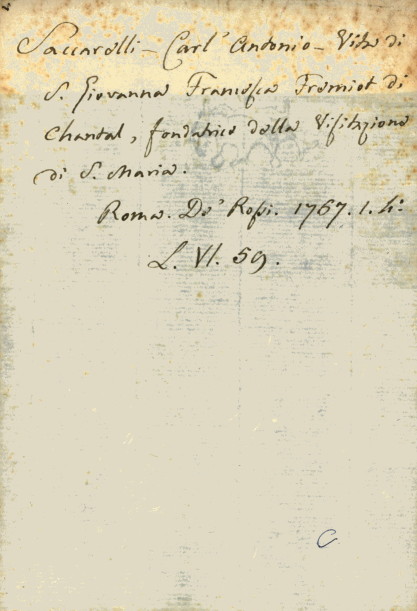 Saccarelli - Carl' Antonio - Vita di
S. Giovanna Francesca Fremiot di
Chantal, fondatrice della Visitazione
di S. Maria.
Roma. De' Rossi. 1767. 1. 4:
L. VI. 59.
C